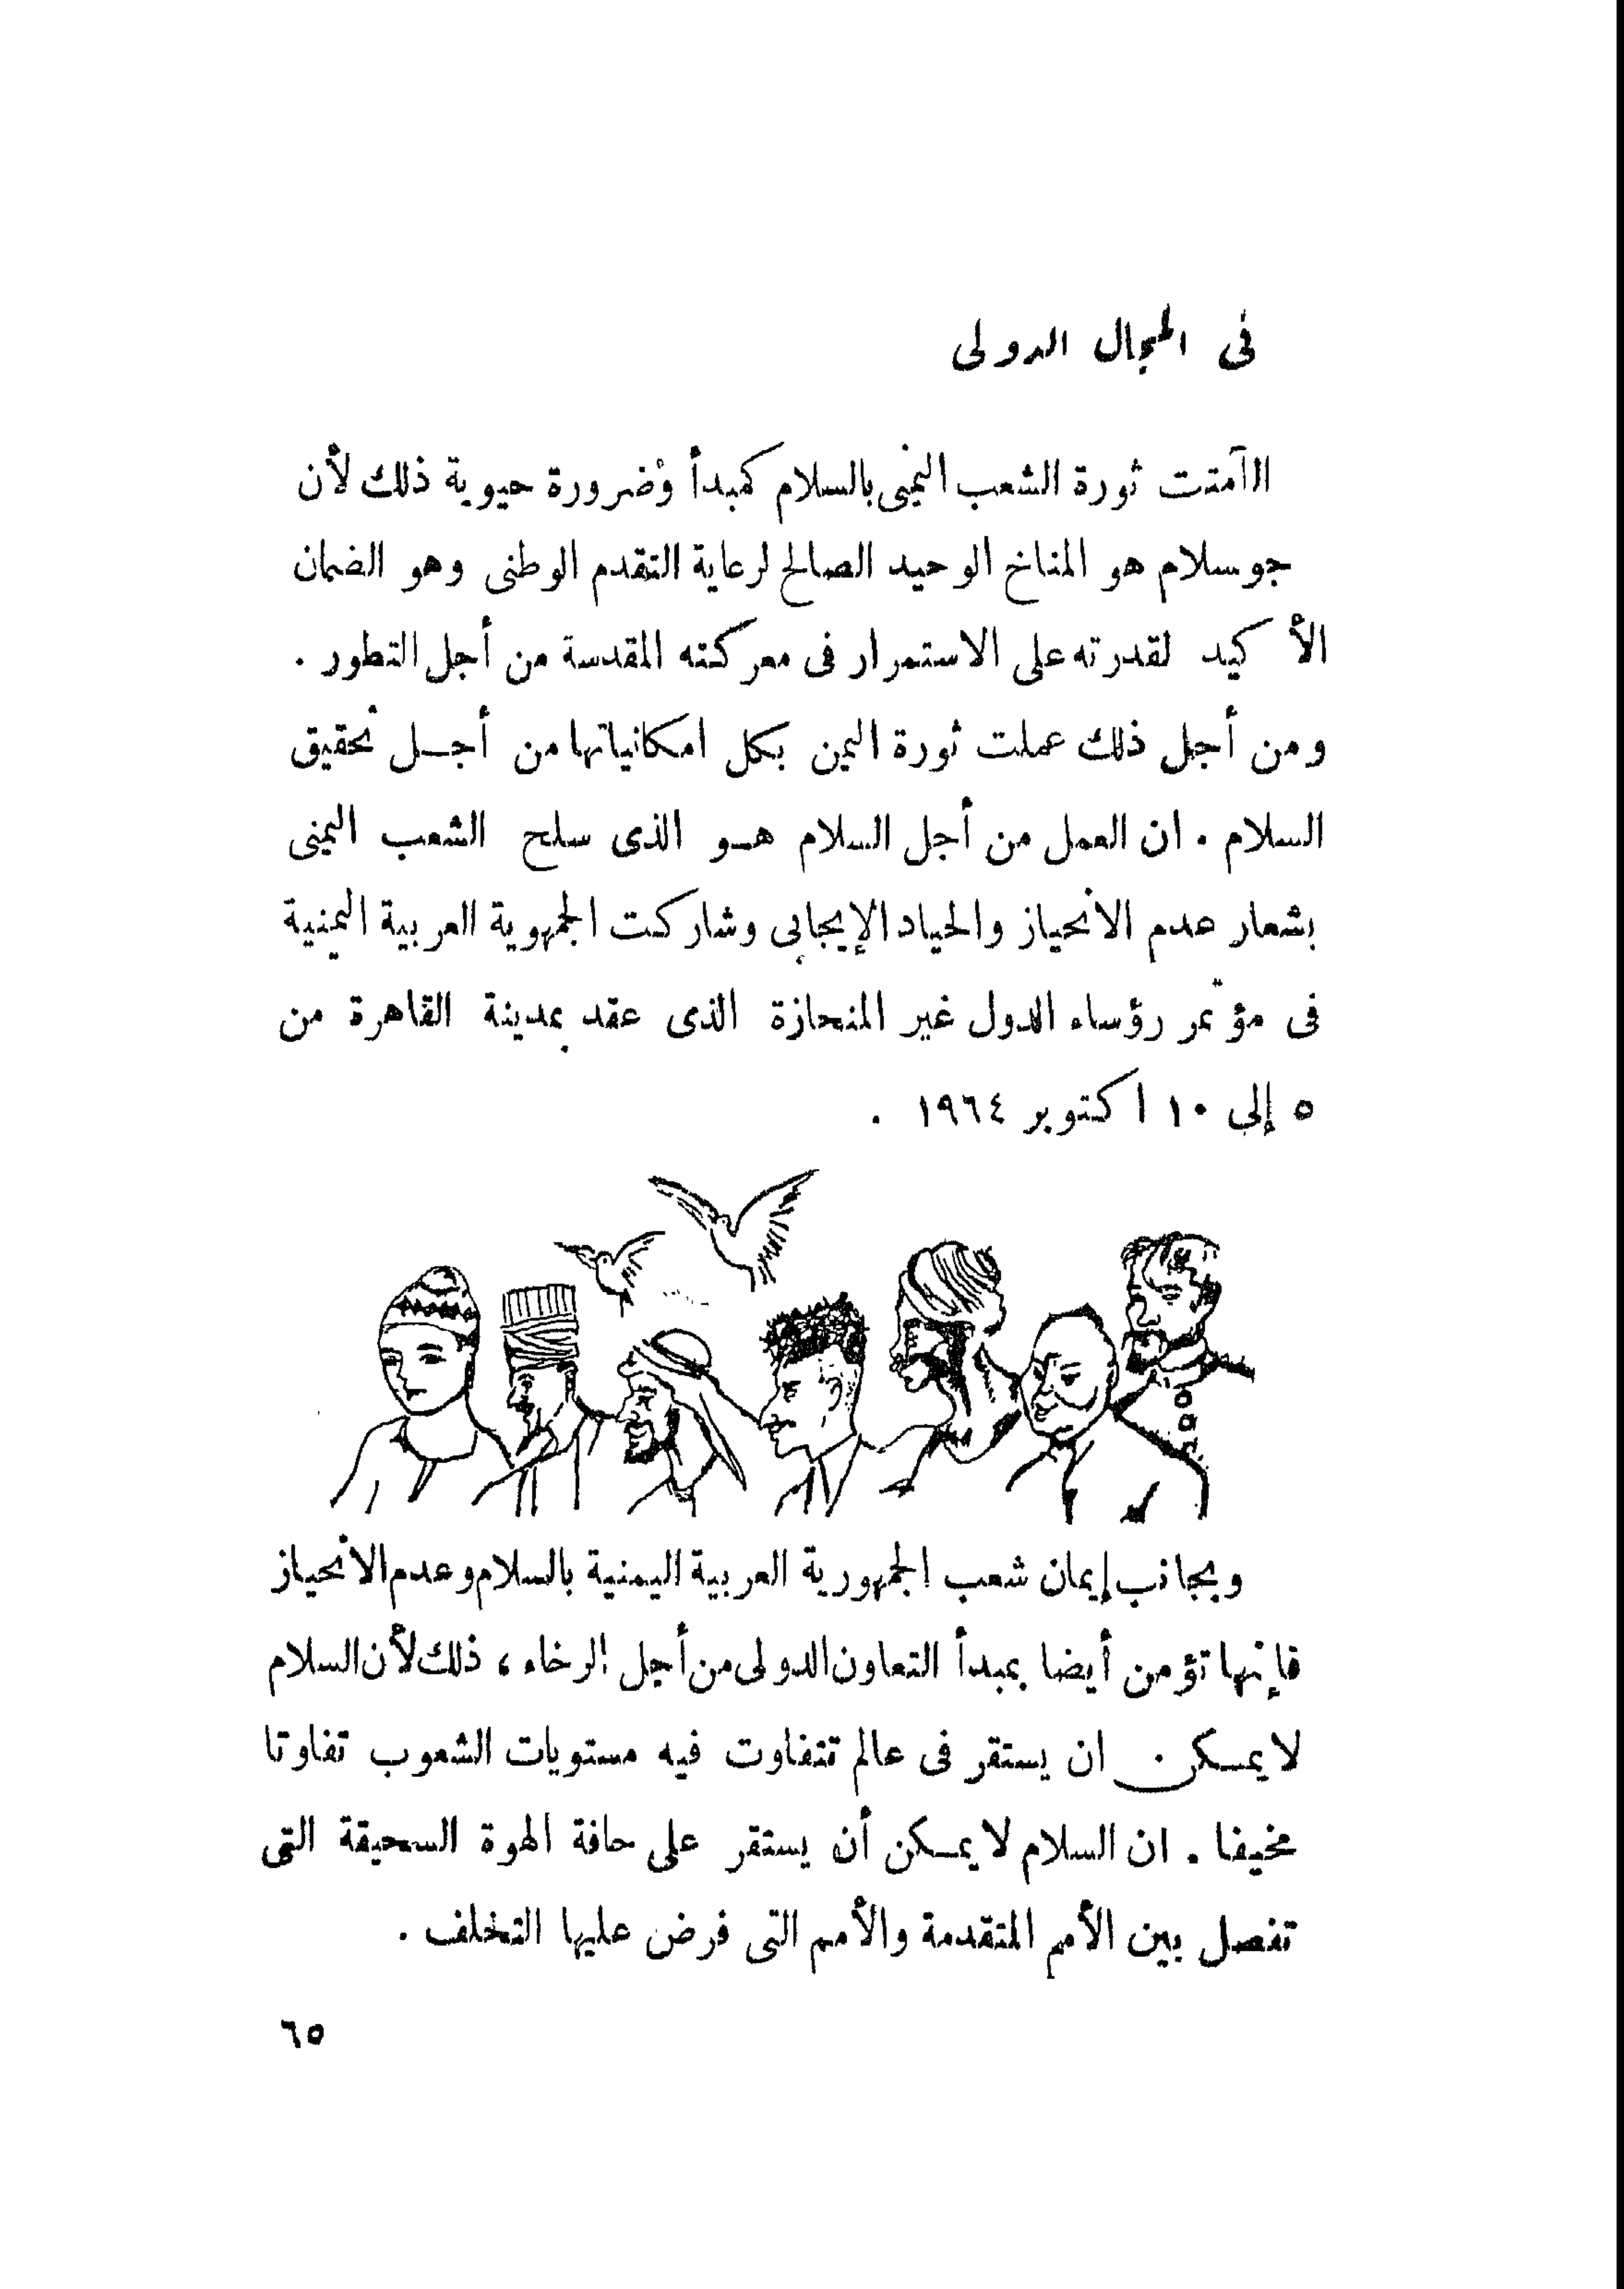 فى المجال الدولى
الآمنت ثورة الشعب اليمنى بالسلام كمبدأ وضرورة حيوية ذلك لأن
جو سلام هو المناخ الوحيد الصالح لرعاية التقدم الوطنى وهو الضمان
الأكيد لقدرته على الاستمرار فى معركته المقدسة من أجل التطور .
ومن أجل ذلك عملت ثورة اليمن بكل امكانياتها من أجل تحقيق
السلام . ان العمل من أجل السلام هو الذى سلح الشعب اليمنى
بشعار عدم الانحياز والحياد الإيجابى وشاركت الجمهوية العربية اليمنية
فى مؤتمر رؤساء الدول غير المنحازة الذى عقد بمدينة القاهرة من
٥ إلى ١٠ اكتوبر ١٩٦٤ .
وبجانب إيمان شعب الجمهورية العربية اليمنية بالسلام وعدم الانحياز
فإنها تؤمن أيضا بمبدأ التعاون الدولى من أجل الرخاء ، ذلك لأن السلام
لا يمكن ان يستقر فى عالم تتفاوت فيه مستويات الشعوب تفاوتا
مخيفا . ان السلام لا يمكن أن يستقر على حافة الهوة السحيقة التى
تفصل بين الأمم المتقدمة والأمم التى فرض عليها التخلف .
٦٥